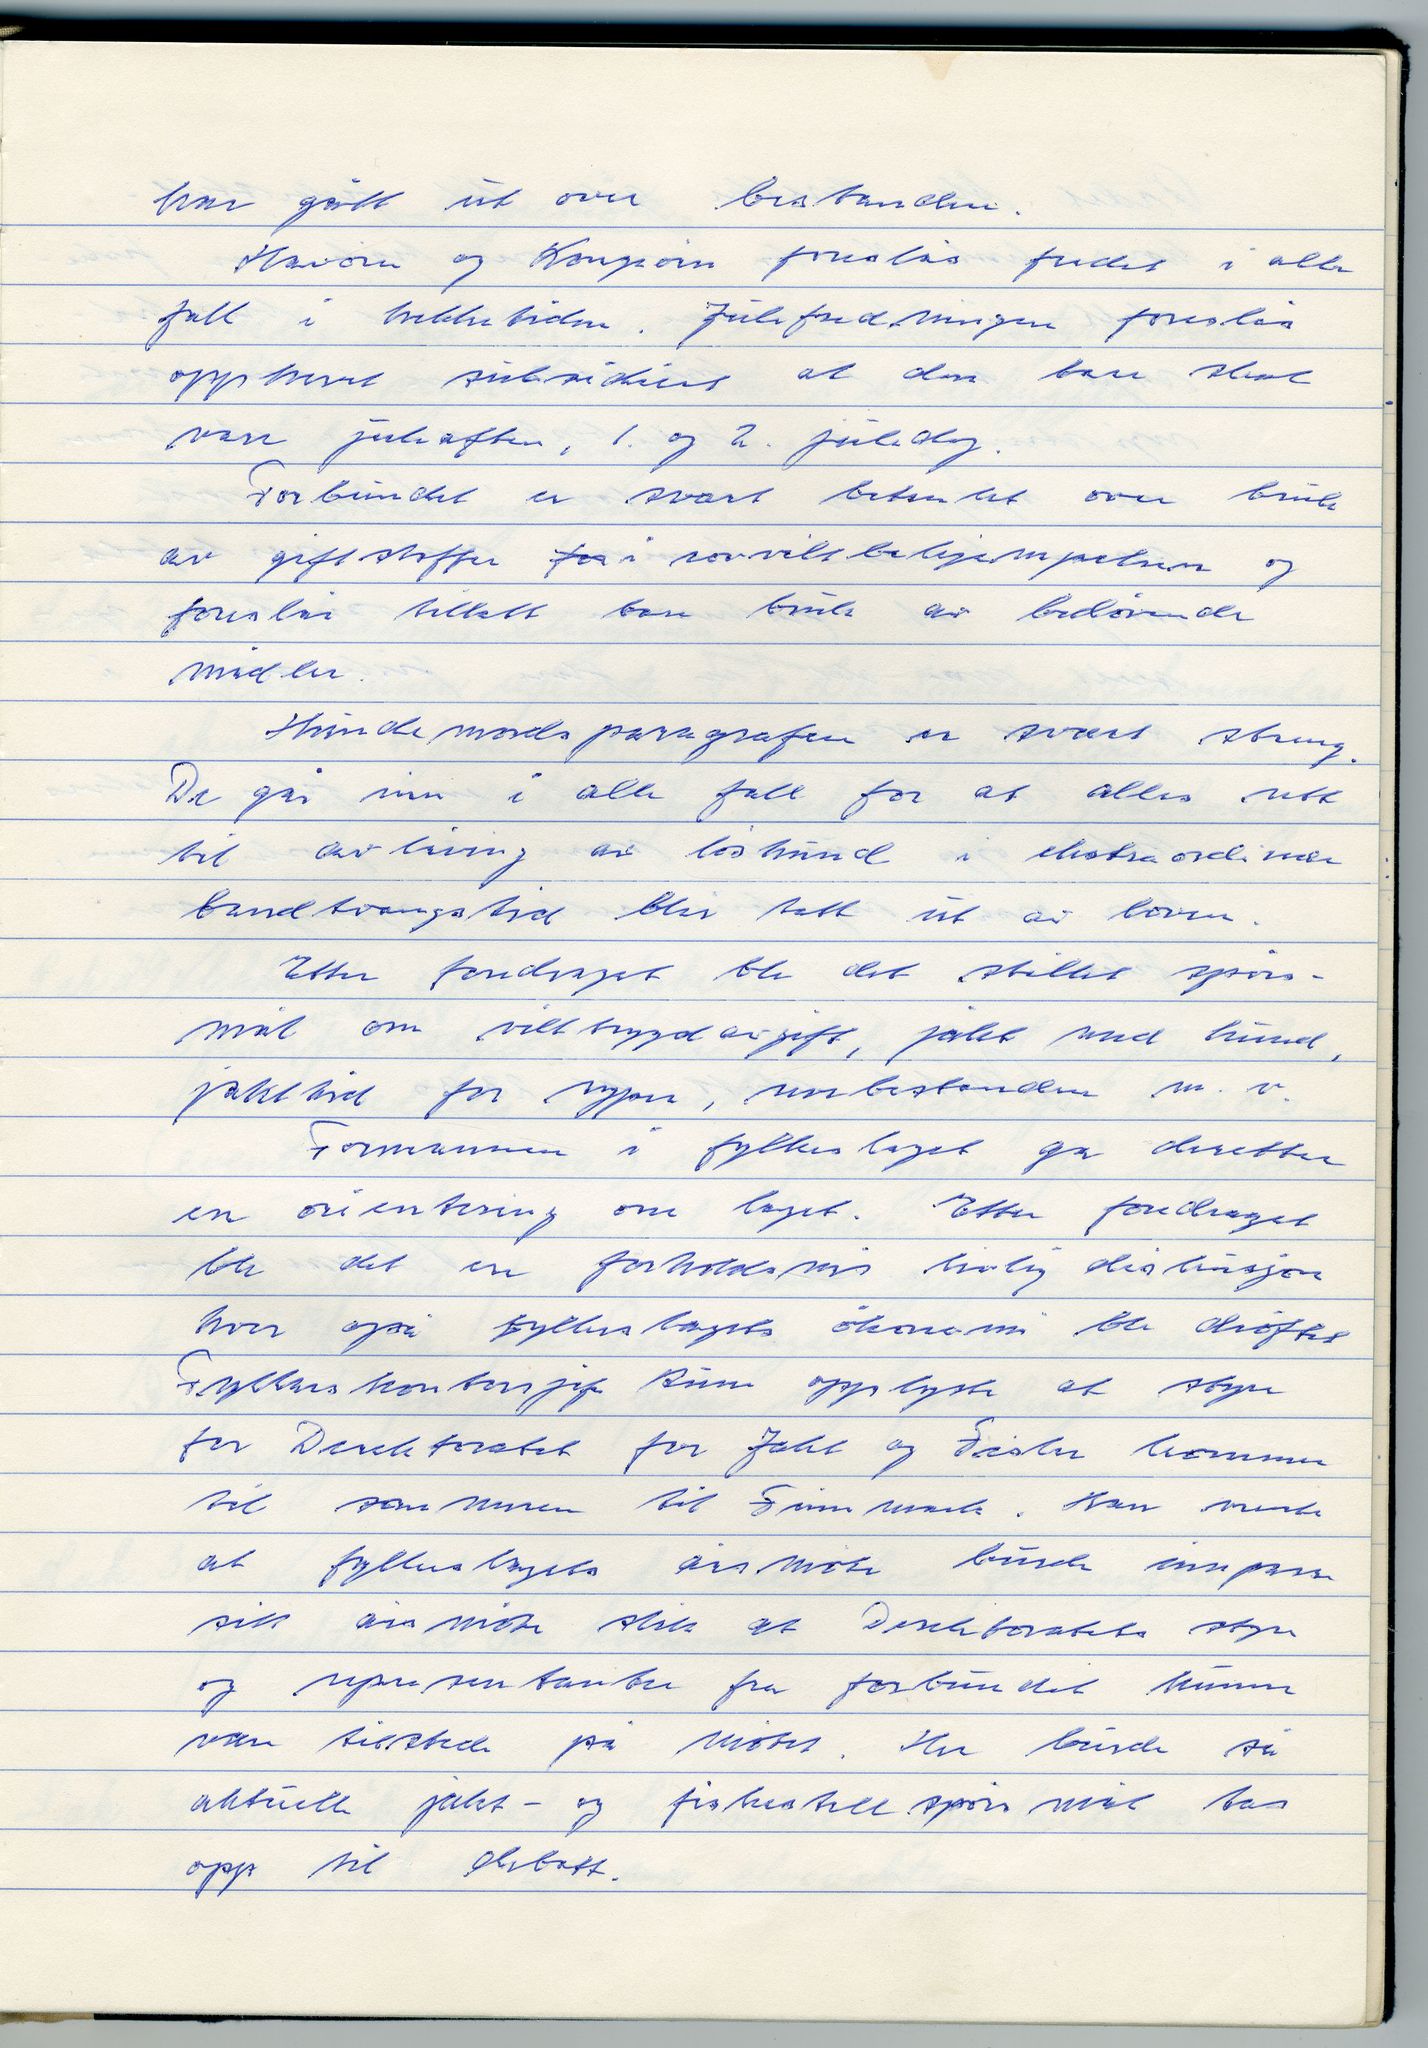 har gått ut over bestanden.
Havörn og Kongeörn foreslås fredet i alle
fall i hekketiden. Julefredningen foreslås
opphevet subsidiert at den bare skal
vare juleaften, 1. og 2. juledag.
Forbundet er svært betenkt over bruk
av giftstoffer for i rovviltbekjempelsen og
foreslår tillatt bare bruk av bedövende
midler.
Hundemordsparagrafen er svært streng.
De går inn i alle fall for at alles rett
til avliving av löshund i ekstraordinær
båndtvangstid blir tatt ut av loven.
Etter foredraget ble det stillet spörs-
mål om vilttrygdavgift, jakt med hund,
jakttid for ryper, revbestanden m.v.
Formannen i fylkeslaget ga deretter
en orientering om laget. Etter foredraget
ble det en forholdsvis livlig diskusjon
hvor også fylkeslagets ökonomi ble dröftet
Fylkeskontorsjef opplyste at styre
for Direktoratet for Jakt og Fiske kommer
til sommeren til Finnmark. Han mente
at fylkeslagets årsmöte burde innpasse
sitt årsmöte slik at Direktoratets styre
og representanter fra forbundet kunne
være tilstede på mötet. Her burde så
aktuelle jakt- og fiskestellspörsmål tas
opp til debatt.